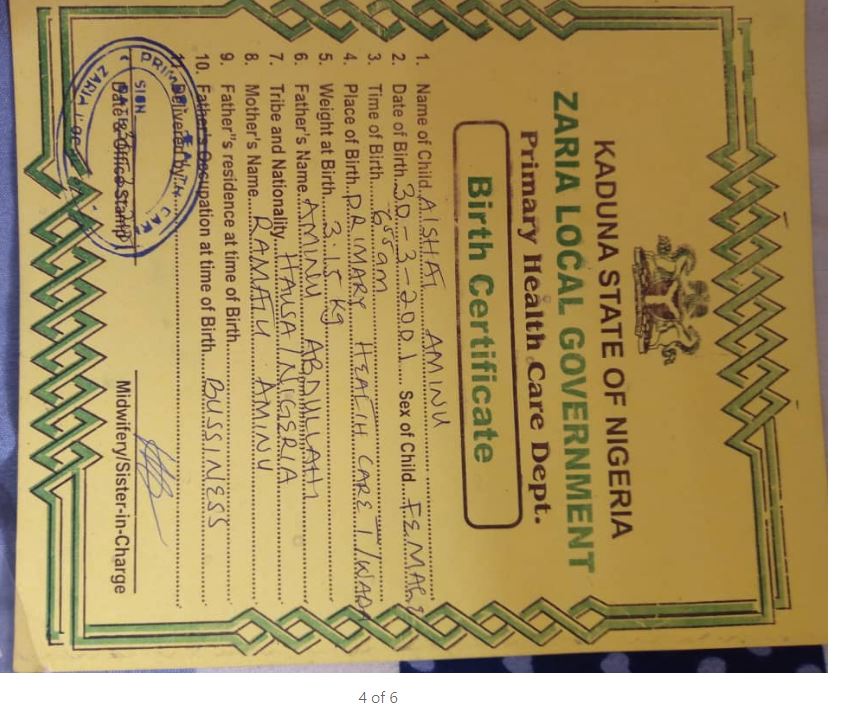 KADUNA STATE OF NIGERIA
ZARIA LOCAL GOVERNMENT
Primary Health Care Dept.
Birth Certificate
1. Name of Child. AISHAT AMINU
2. Date of Birth. 30-3-2001 Sex of Child FEMALE
3. Time of Birth 6 55 am
4. Place of Birth. PRIMARY HEALTH CARE T/WADA
5. Weight at Birth 3.15 Kg
6. Father's Name. AMINU ABDULLAHI
7. Tribe and Nationality HAUSA/NIGERIA
8. Mother's Name RAMATU AMINU
9. Father"s residence at time of Birth
10. Father's Occupation at time of Birth BUSSINESS
11. Delivered by
Date & Office Stamp
PRIMARY HEALTH CARE
SIGN
ZARIA
Midwifery/Sister-in-Charge
4 of 6